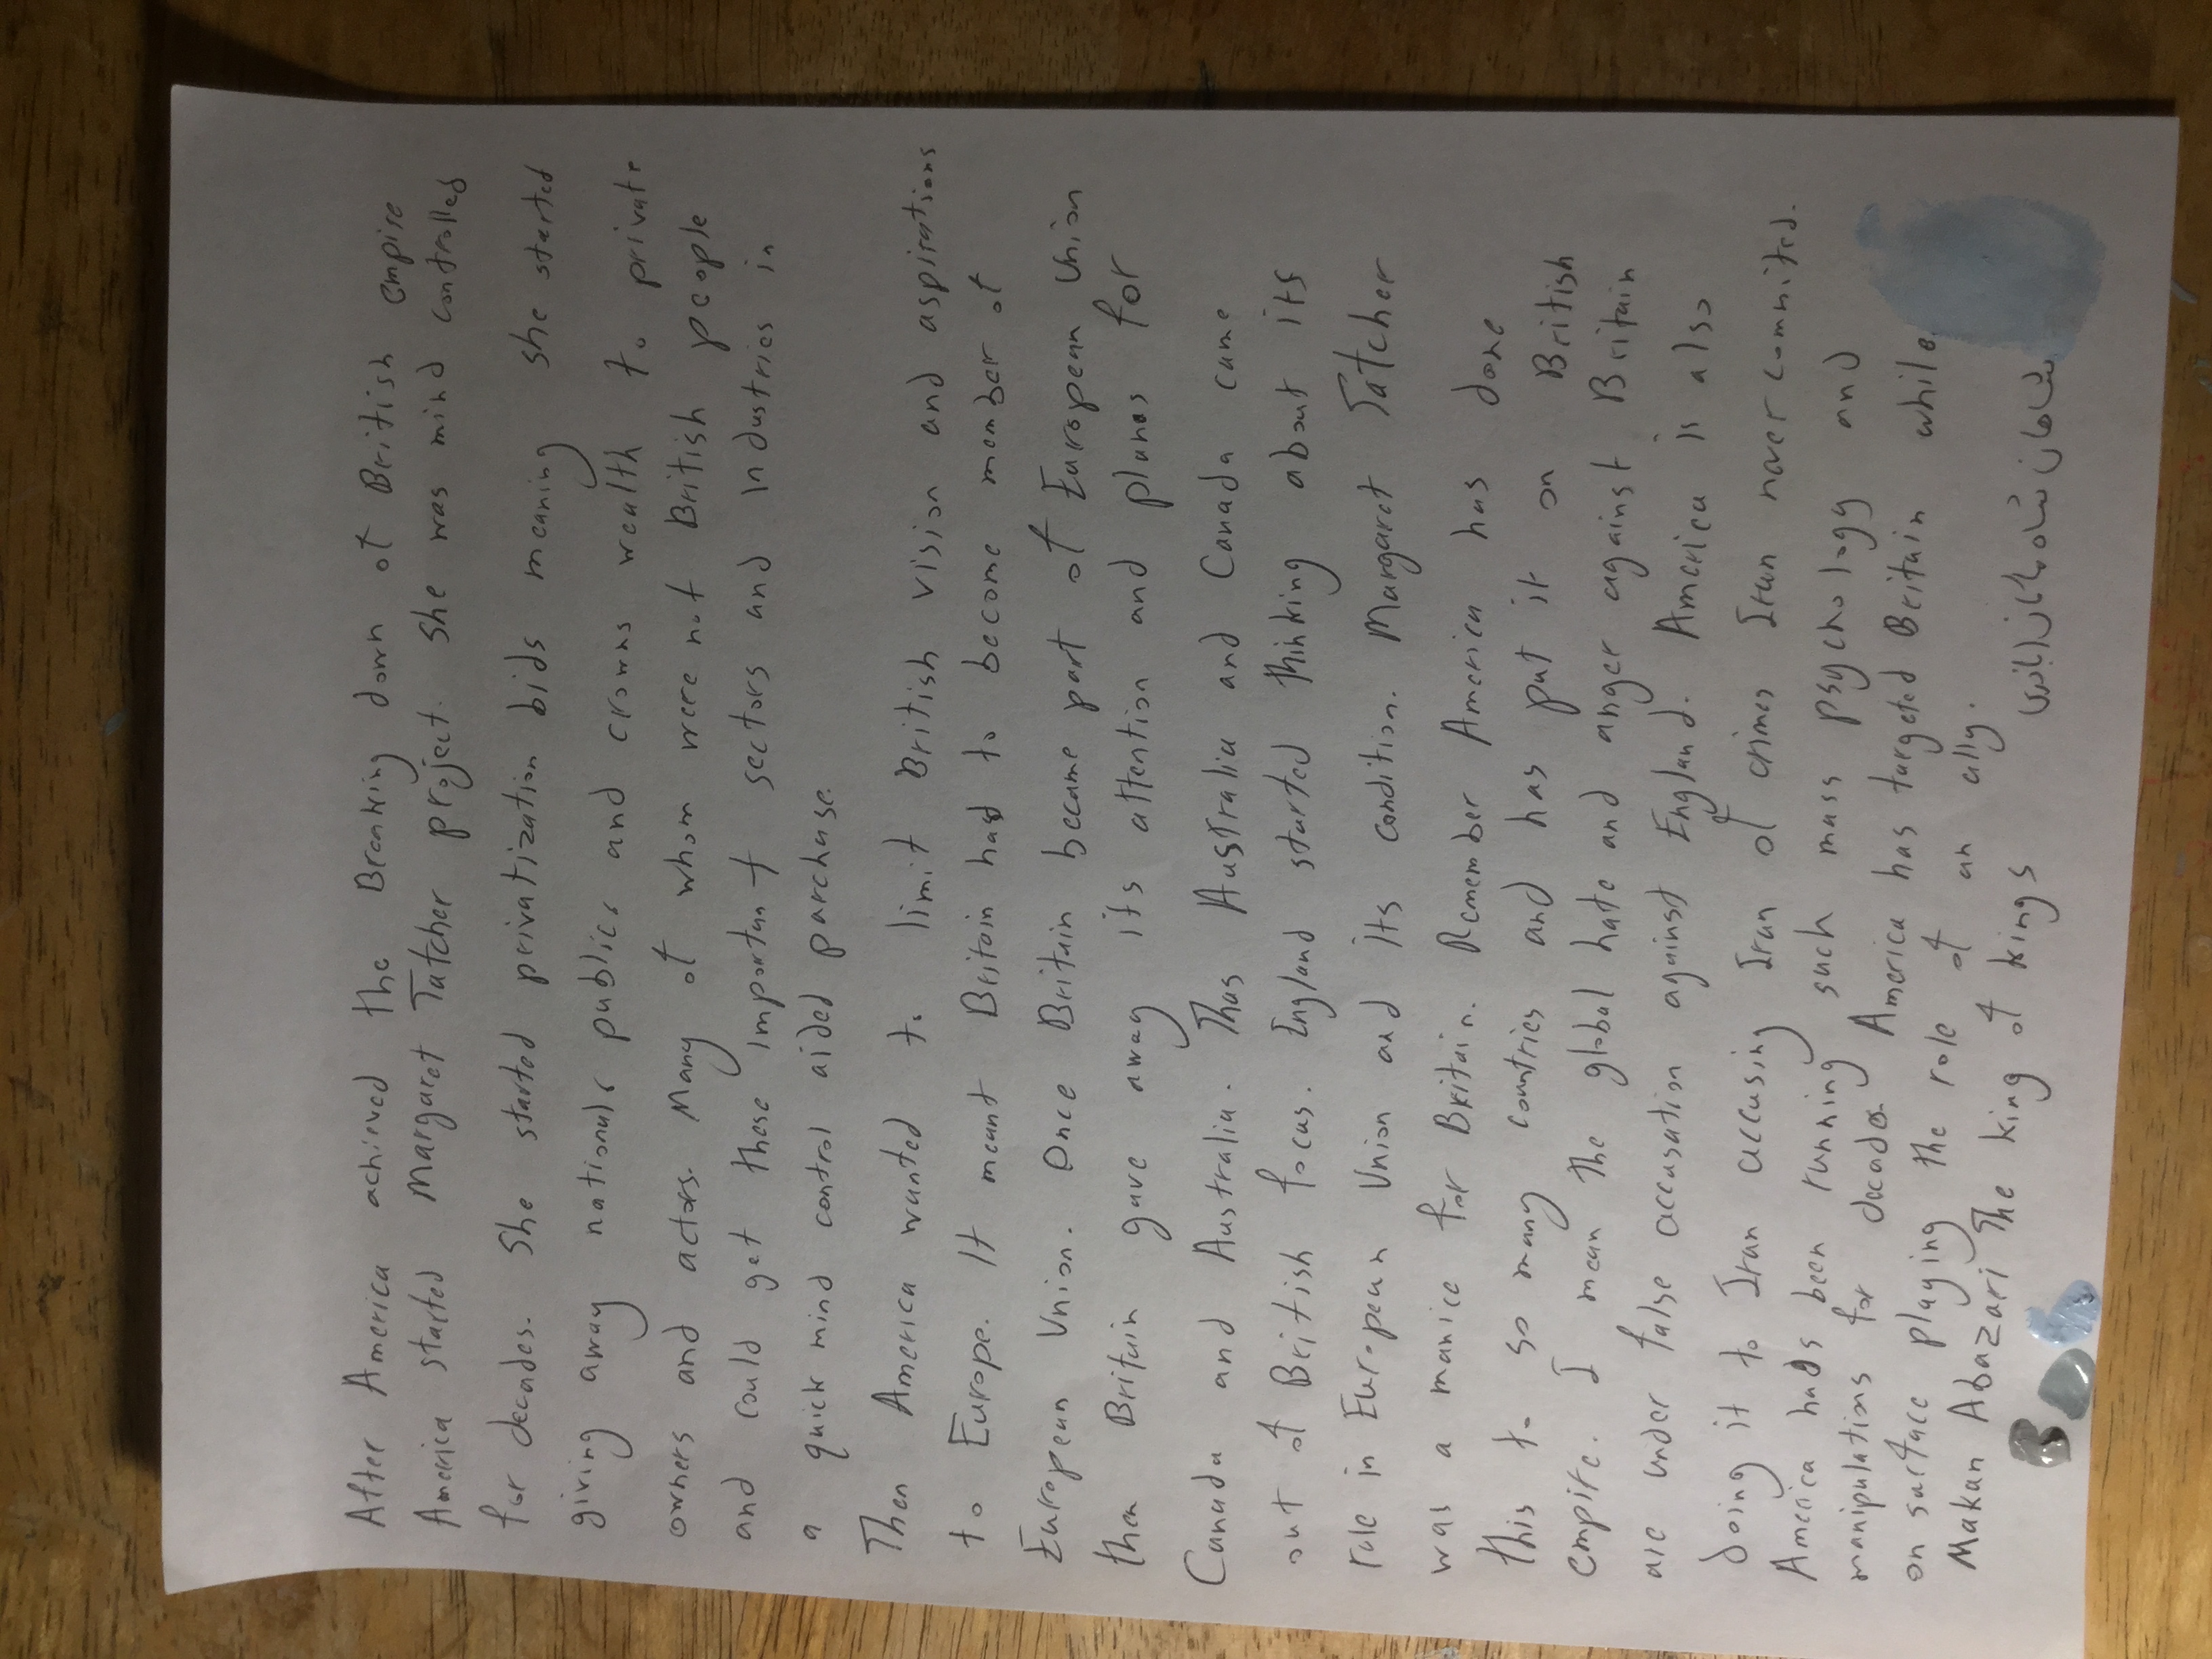 After America achieved the Breaking down of British empire
America started Margaret Tatcher project. She was mind controlled
for decades. She started privatization bids meaning she started
giving away nationals publics and crowns wealth to private
owners and actors. Many of whom were not British people
and could get these important sectors and Industries in
a quick mind control aided purchase.
Then America wanted to limit British vision and aspirations
to Europe. It meant Britain had to become member of
European Union. Once Britain became part of European Union
then Britain gave away its attention and planes for
Canada and Australia. Thus Australia and Canada came
out of British focus. England started thinking about its
rule in European Union and its condition. Margaret Tatcher
was a manice for Britain. Remember America has done
this to so many countries and has put it on British
empire. I mean the global hate and anger against Britain
are under false accusation against England. America is also
doing it to Iran accusing Iran of crimes Iran never commited.
America hads been running such mass psychology and
manipulations for decades. America has targeted Britain while
on surface playing the role of an ally.
Makan Abazari The king of kings